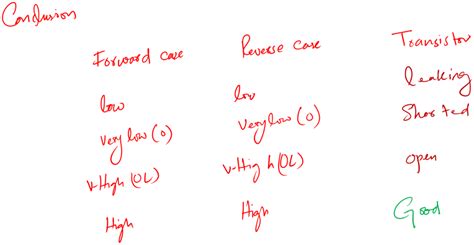 Conclusion
Forward case Reverse case Transistor
low low leaking
very low (0) very low (0) Shorted
v-High (OL) v-High (OL) open
High High Good